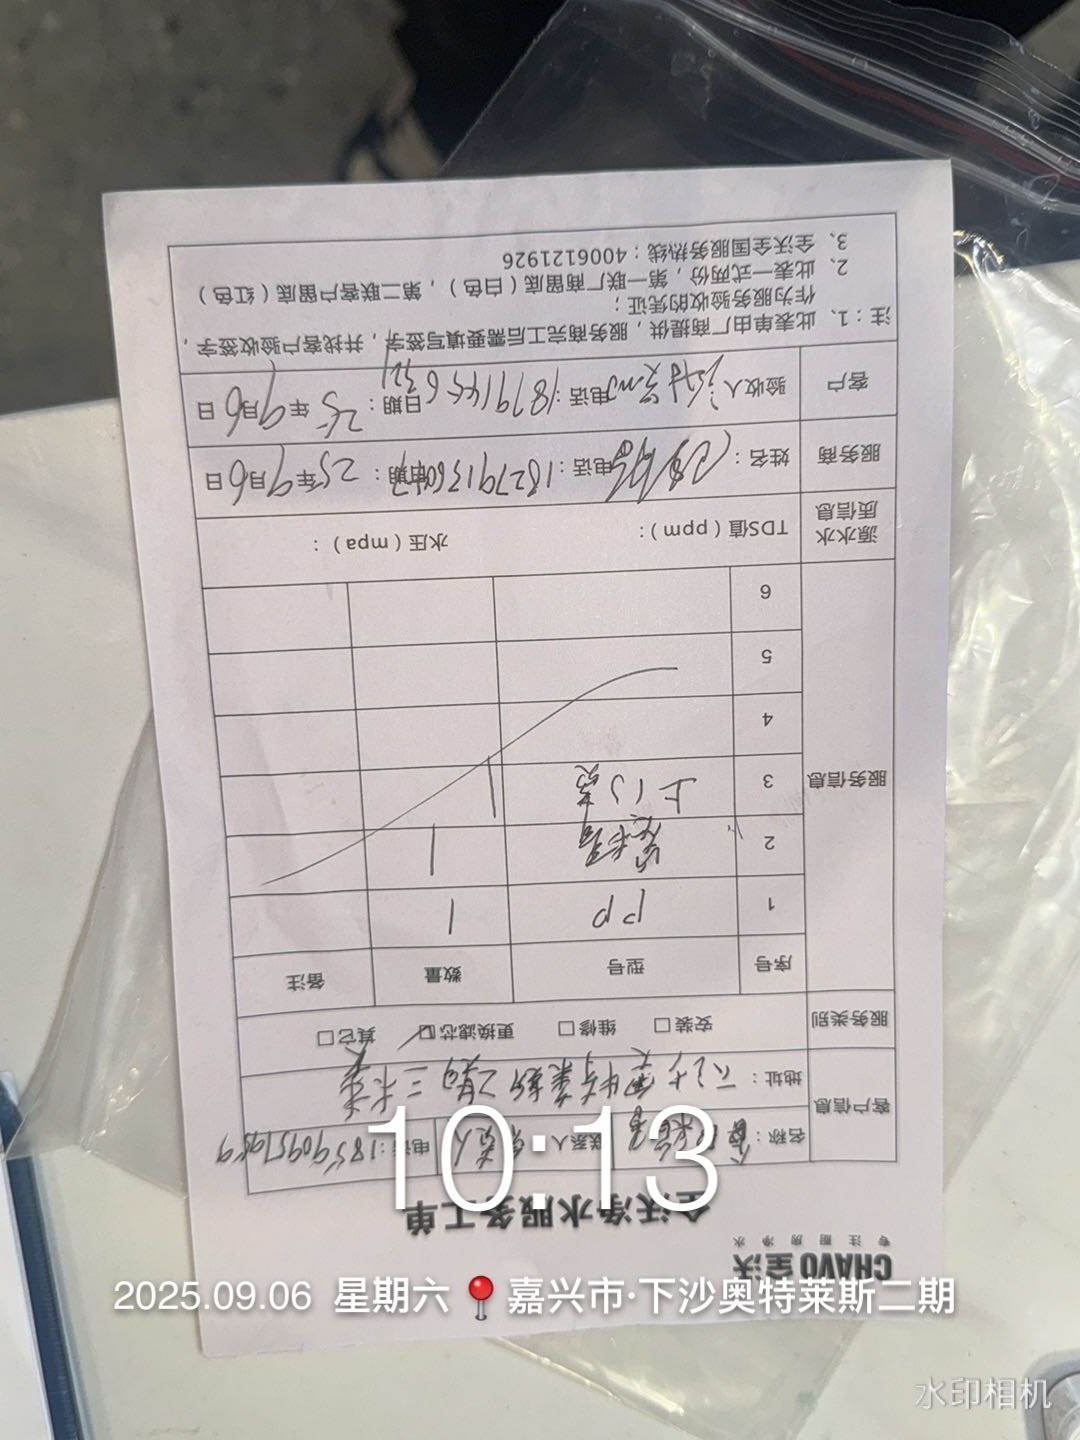 CHAVO 全沃
专注厨房净水
全沃净水服务工单
客户信息 名称： 联系人 电话：18590957959
地址： 下沙奥特莱斯二期三 
服务类别 安装□ 维修□ 更换滤芯☑ 其它□
服务信息 序号 型号 数量 备注
1 PP 1
2 1
3 上门费 1
4
5
6
源水水质信息 TDS值（ppm）： 水压（mpa）：
服务商 姓名： 电话： 日期：25年9月6日
客户 验收人 电话： 日期：25年9月6日
注：1、此表单由厂商提供，服务商完工后需要填写签字，并找客户验收签字，
作为服务验收的凭证；
2、此表一式两份，第一联厂商留底（白色），第二联客户留底（红色）
3、全沃全国服务热线：4006121926
10:13
2025.09.06 星期六 嘉兴市·下沙奥特莱斯二期
水印相机